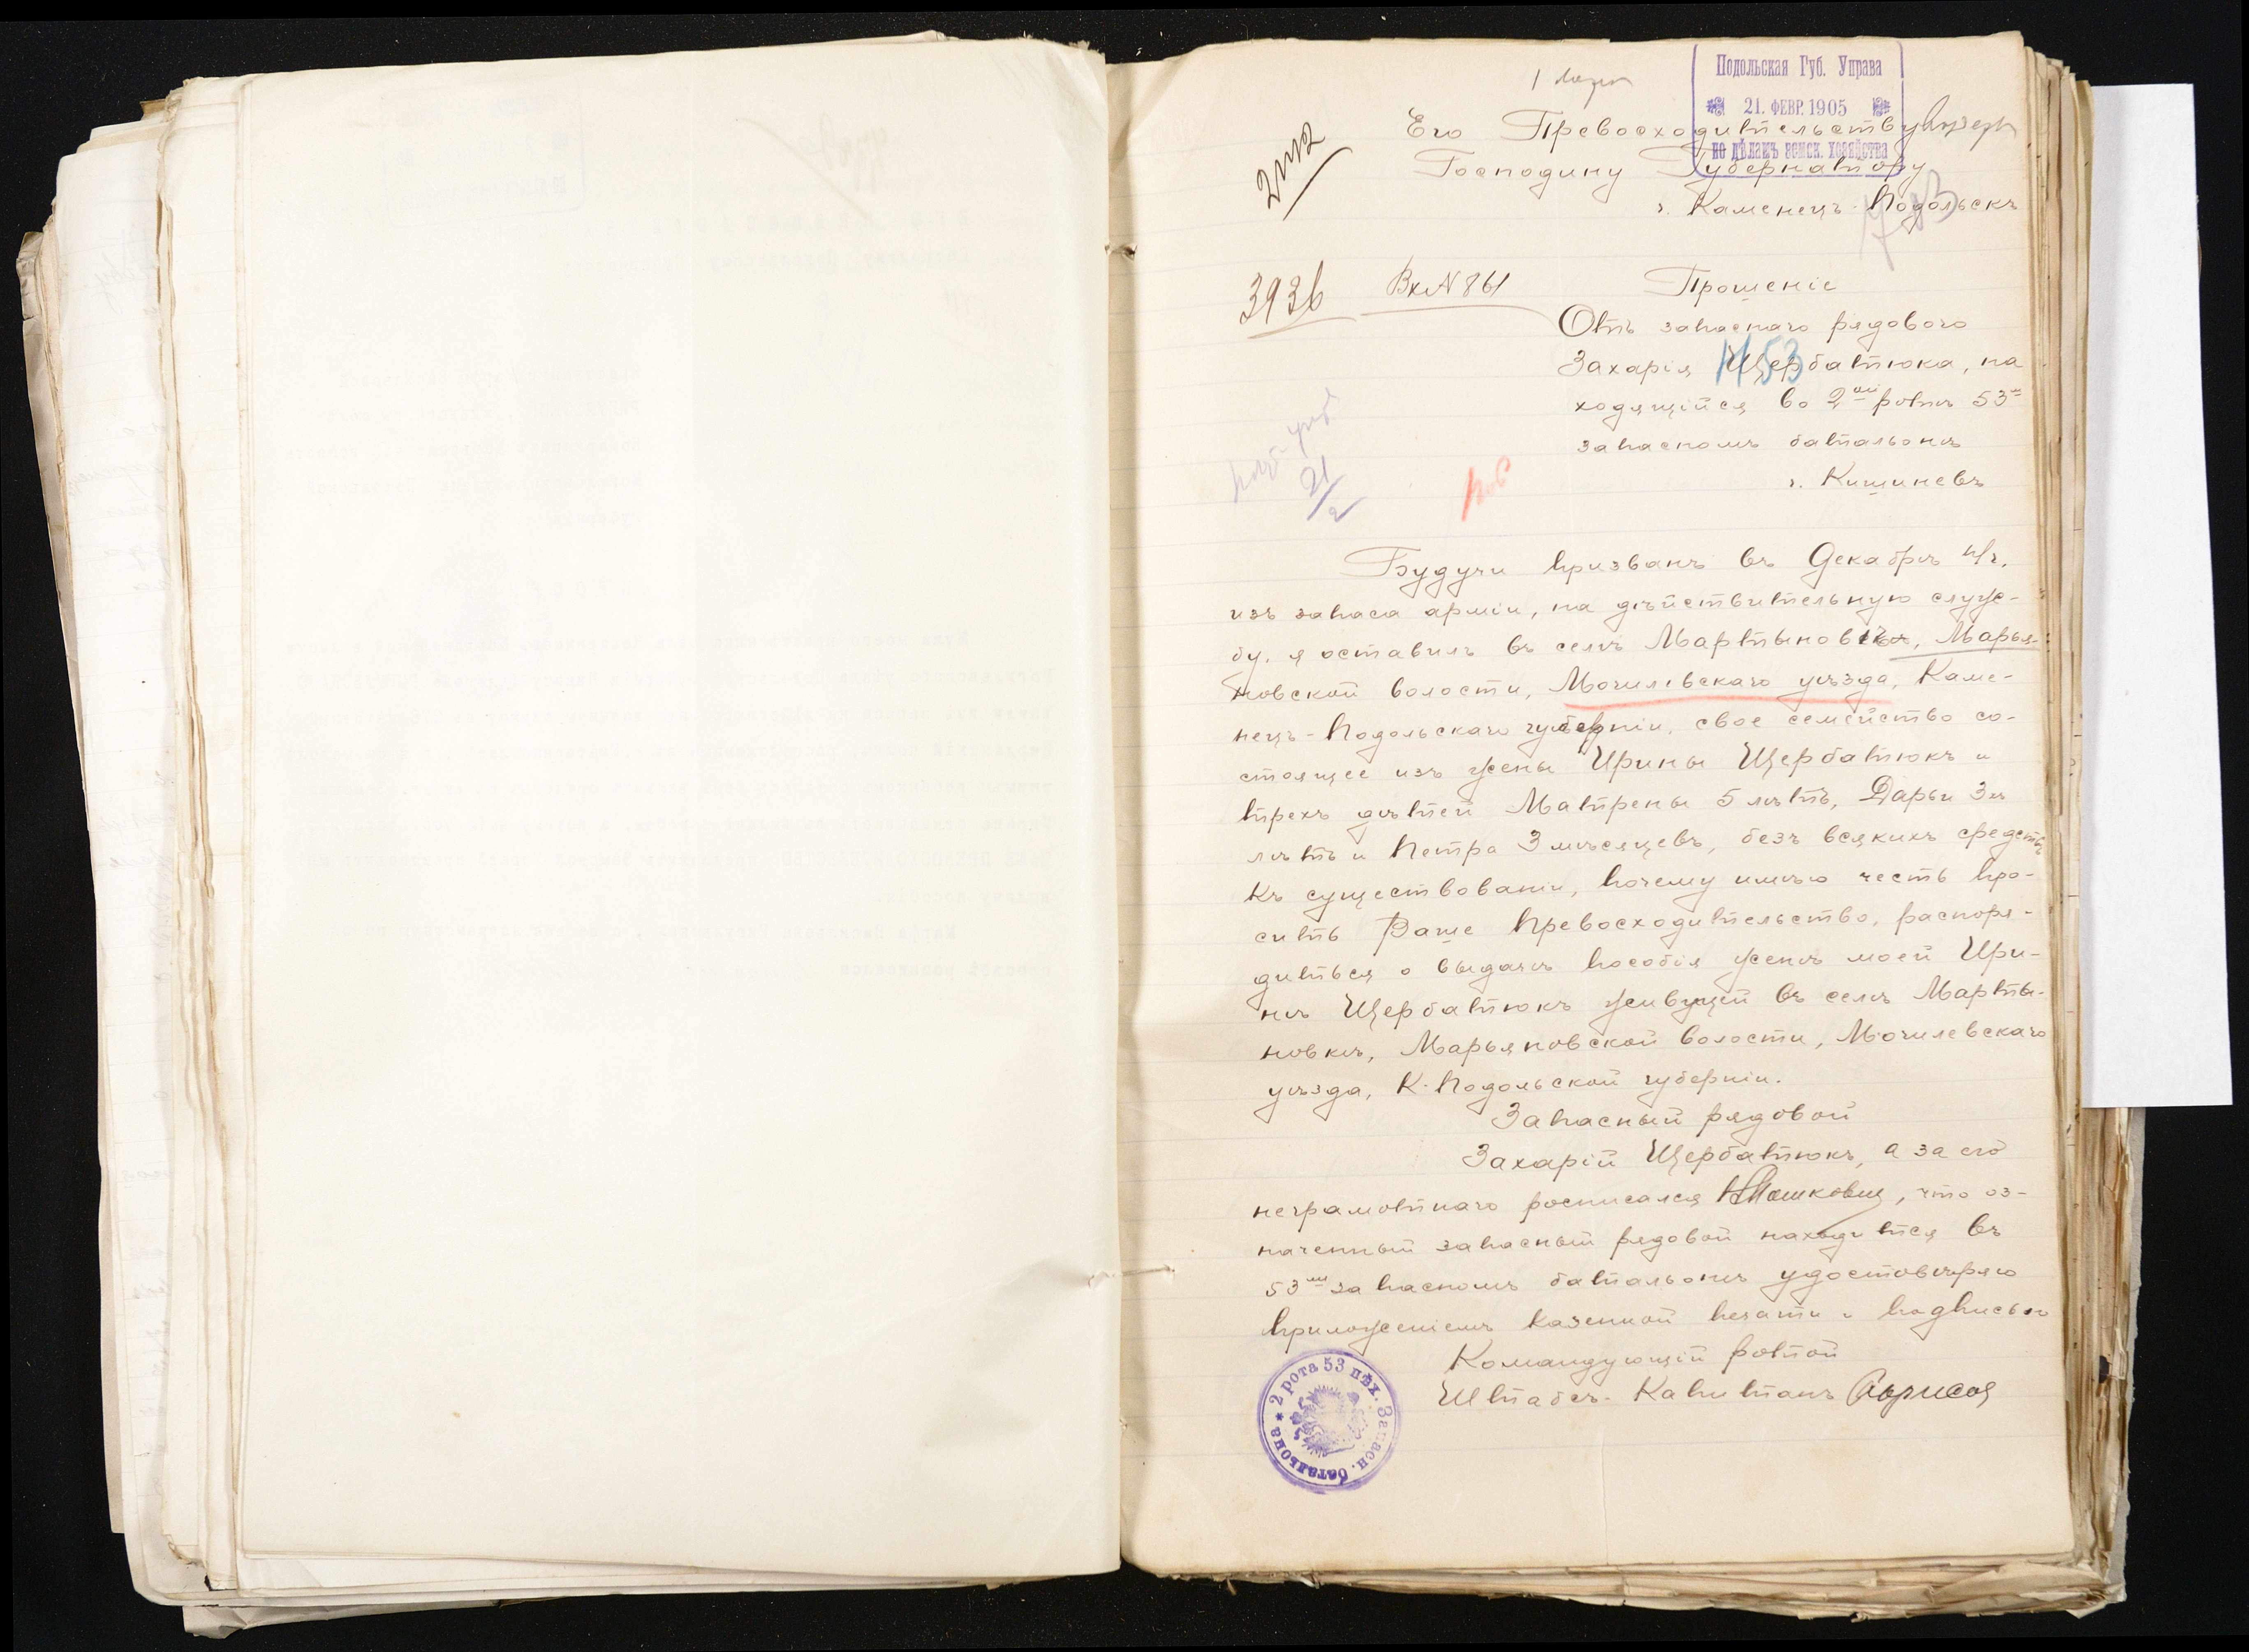 1 Марта
Подольская Губ. Управа
21. ФЕВР. 1905
по дѣламъ земск. хозяйства
Его Превосходительству
Господину Губернатору
г. Каменецъ-Подольскъ
3936 Вх N 861
Прошеніе
Отъ запаснаго рядового
Захарія Щербатюка, на
ходящійся во 2ой ротѣ 53м
запасномъ батальонѣ
г. Кишиневъ
1453
21/2
Будучи призванъ въ Декабрѣ п/г.
изъ запаса арміи, на дѣйствительную служ-
бу, я оставилъ въ селѣ Мартыновкѣ, Марья-
новской волости, Могилевскаго уѣзда, Каме-
нецъ-Подольскаго губерніи, свое семейство со-
стоящее изъ жены Ирины Щербатюкъ и
трехъ дѣтей Матрены 5 лѣтъ, Дарьи 3х
лѣтъ и Петра 3 мѣсяцевъ, безъ всякихъ средствъ
къ существовани, почему имѣю честь про-
сить Ваше Превосходительство, распоря-
диться о выдачѣ пособія женѣ моей Ири-
нѣ Щербатюкъ живущей въ селѣ Марты-
новкѣ, Марьяновской волости, Могилевскаго
уѣзда, К-Подольской губерніи.
Запасный рядовой
Захарій Щербатюкъ, а за его
неграмотнаго росписался Машкович, что оз-
наченный запасный рядовой находится въ
53мъ запасномъ батальонѣ удостовѣряю
приложеніемъ казенной печати и подписью
Командующій ротой
Штабсъ-Капитанъ
2 рота 53 пѣх. Запасн. баталъона